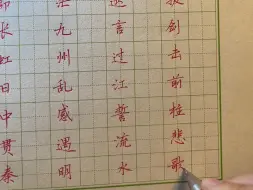 拔剑击前柱悲歌
逖言过江誓流水
茫九州乱感遇明
昴长虹日中贯秦